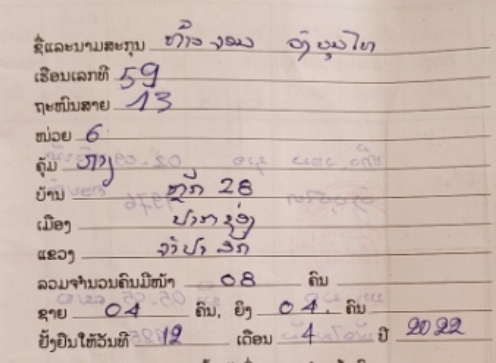 ຊື່ແລະນາມສະກຸນ ທ້າວ
ເຮືອນເລກທີ 59
ຖະໜົນສາຍ 13
ໜ່ວຍ 6
ຄຸ້ມ ກາງ
ບ້ານ ຫຼັກ 28
ເມືອງ ປາກຊ່ອງ
ແຂວງ ຈຳປາສັກ
ລວມຈຳນວນຄົນມີໜ້າ 08 ຄົນ
ຊາຍ 04 ຄົນ, ຍິງ 04 ຄົນ
ຢັ້ງຢືນໃຫ້ວັນທີ 12 ເດືອນ 4 ປີ 2022